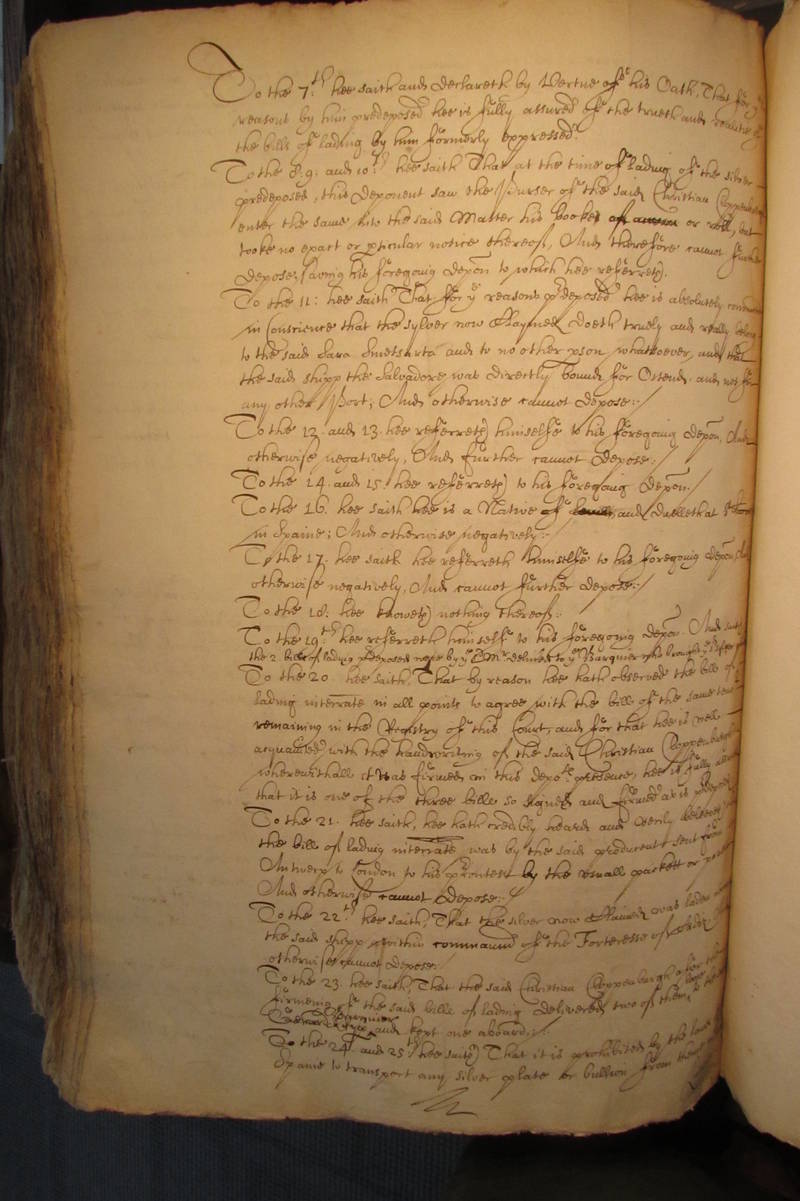 To the 7:th hee saith and declareth by Vertue of his Oath, That for ye
reasons by him predeposed hee is fully assured of the trueth and realitie of
the bills of lading by him formerly expressed.
To the 8. 9. and 10:th hee saith That at the time of lading of the silver
predeposed, this deponent saw the Purser of the said Christian Cloppenburgh
enter the same into the said Master his booke or roll, but
tooke no exact or pticular notice thereof, And therefore cannot further
depose, saving his foregoing depon to which hee referreth.
To the 11: hee saith That for ye reasons pdeposed hee is absolutely convinced
in Conscience that the sylver now Claymed doeth truely and really belong
to the said Sara and to no other pson whatsoever, and that
the said shipp the Salvadore was directly bound for Ostend and not for
any other Port; And otherwise cannot depose:/
To the 12. and 13. hee referreth himselfe to his foregoing depon, And
otherwise negatively, And further cannot depose./
To the 14. and 15. hee referreth to his foregoing depon./
To the 16. hee saith hee is a Native of and dwelleth at
in Spaine; And otherwise negatively:
To the 17. hee saith hee referreth himselfe to his foregoing depon, And
otherwise negatively, And cannot further depose:/
To the 18: hee knoweth nothing thereof:
To the 19:th hee referreth himself to his foregoing depon. And saith
the 2. bills of lading pdeposed were by ye Mr delivered to ye
To the 20. hee saith, That by reason hee hath observed the bill of
lading interrate in all points to agree with the bill of the same tenor
remaining in the Registry of this Court, and for that hee is well
acquainted with the handwriting of the said Christian Cloppenburgh
wherewithall it was firmed in this depots presence, hee is fully assured
that it is one of the three bills so signed and firmed as is pdeposed
To the 21. hee saith, hee hath credibly heard and verily beleeveth
the bill of lading interrate was by the said producent sent from
Antwerp to London to his by the small packett or
And otherwise cannot depose:/
To the 22:th hee saith, That the silver now Claimed was laden
the said shipp within command of the Fortresse of
otherwise cannot depose:
To the 23. hee saith, That the said Christian Cloppenburgh after the
firmeing of the said bills of lading delivered two of them to the
and kept one aboard:/
To the 24th and 25th hee saith That it is prohibited by the lawes
Spaine to transport any silver plate or bullion from thence